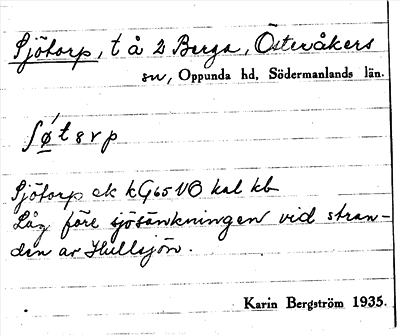 Sjötorp, t å 2 Berga, Österåkers
sn, Oppunda hd, Södermanlands län.
Sjötorp ek kG65VO kal kb
Låg före sjösänkningen vid stran-
den av Hullsjön.
Karin Bergström 1935.